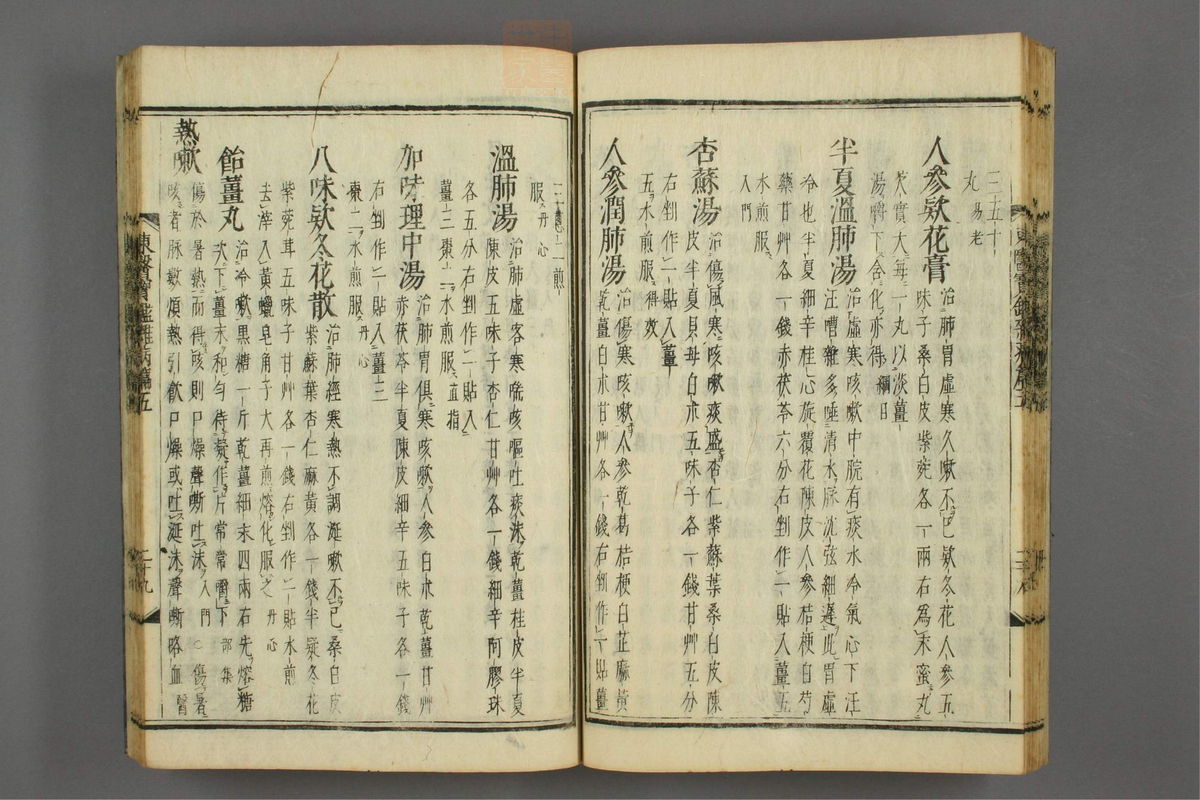 三五十
丸 易老
人參款花膏 治肺胃虛寒久嗽不已款冬花人參五
味子桑白皮紫菀各一兩右爲末蜜丸
芡實大每一丸以淡薑
湯嚼下含化亦得 綱目
半夏溫肺湯 治虛寒咳嗽中脘有痰水冷氣心下汪
汪嘈雜多唾清水脉沈弦細遲此胃虛
冷也半夏細辛桂心旋覆花陳皮人參桔梗白芍
藥甘艸各一錢赤茯苓六分右剉作一貼入薑五
水煎服
入門
杏蘇湯 治傷風寒咳嗽痰盛杏仁紫蘇葉桑白皮陳
皮半夏貝母白朮五味子各一錢甘艸五分
右剉作一貼入薑
五水煎服 得效
人參潤肺湯 治傷寒咳嗽人參乾葛桔梗白芷麻黃
乾薑白朮甘艸各一錢右剉作一貼薑
三葱二煎
服 丹心
溫肺湯 治肺虛客寒喘咳嘔吐痰沫乾薑桂皮半夏
陳皮五味子杏仁甘艸各一錢細辛阿膠珠
各五分右剉作一貼入
薑三棗二水煎服 直指
加味理中湯 治肺胃俱寒咳嗽人參白朮乾薑甘艸
赤茯苓半夏陳皮細辛五味子各一錢
右剉作一貼入薑三
棗二水煎服 丹心
八味款冬花散 治肺經寒熱不調涎嗽不已桑白皮
紫蘇葉杏仁麻黃各一錢半款冬花
紫菀茸五味子甘艸各一錢右剉作一貼水煎
去滓入黃蠟皂角子大再煎熔化服之 丹心
飴薑丸 治冷嗽黑糖一斤乾薑細末四兩右先熔糖
次下薑末和勻待凝作片常常嚼下 集部
熱嗽 傷於暑熱而得咳則口燥聲嘶吐沫 入門 ○傷暑
咳者脉數煩熱引飮口燥或吐涎沫聲嘶咯血 醫
東醫寶鑑雜病篇五
二十九